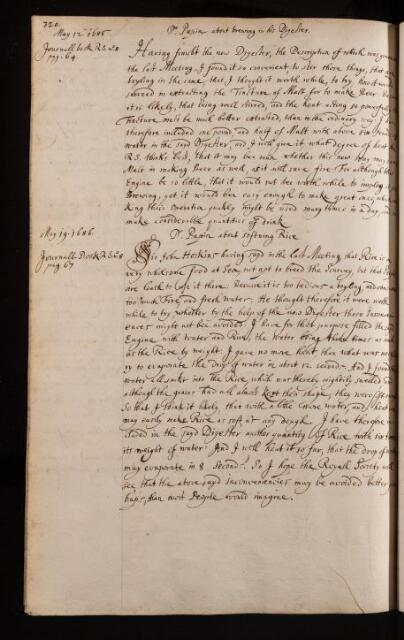 320
May 12 1686
Dr. Papin about brewing in his Digester.
Journall book R.S.
pag. 64.
Having finisht the new Digester, the Description of which was
the last Meeting, I found it so convenient, to ster those things, that
boyling in the same, that I thought it worth while, to try, how it
succeed in extracting the Tincture of Malt for to make Beer
it is likely, that being well stirred, and the heat acting so powerfully
Tincture will be much better extracted, than in the ordinary way; I have
therefore included one pound and half of Malt with above six
water in the sayd Digester, and I will give it what degree of heat the
R.S. thinks best, that it may bee seen whether this new way may
Malt in making Beer as well, as it will save fire. For although the
Engine be so little, that it would not bee worth while to imploy in
Brewing, yet it would bee easy enough to make great ones,
king their Operation quickly might be used many times in a day,
make considerable quantities of drink
May 19. 1686.
Dr. Papin about softning Rice
Journall Book R.S.
pag 67
Sir John Hoskins having sayd in the last Meeting that Rice is a
very wholesome food at Sea, not to breed the Scurvy, but that
are loath to use it there because it is too tedious a boyling, and consumes
too much Fire, and fresh water. He thought therefore it were worth
while to try whether by the help of the new Digester these Inconveni-
ences might not bee avoided. I have for that purpose filled the
Engine with water and Rice, the water being three times as
as the Rice by weight. I gave no more heat then what was
ry to evaporate the drop of water in about 12 seconds. And I found
water all soakt into the Rice, which was thereby mightily swelled
although the grains had all almost kept their shape, they were soft
So that I think it likely, that with a little more water, and heat
may easily make Rice as soft as any dough. I have therefore in-
cluded in the sayd Digester another quantity of Rice with
its weight of water. And I will heat it so far, that the drop of
may evaporate in 8 seconds. So I hope the Royall Society will
see that the above sayd inconveniencies may be avoided better
haps, than most People would imagine.